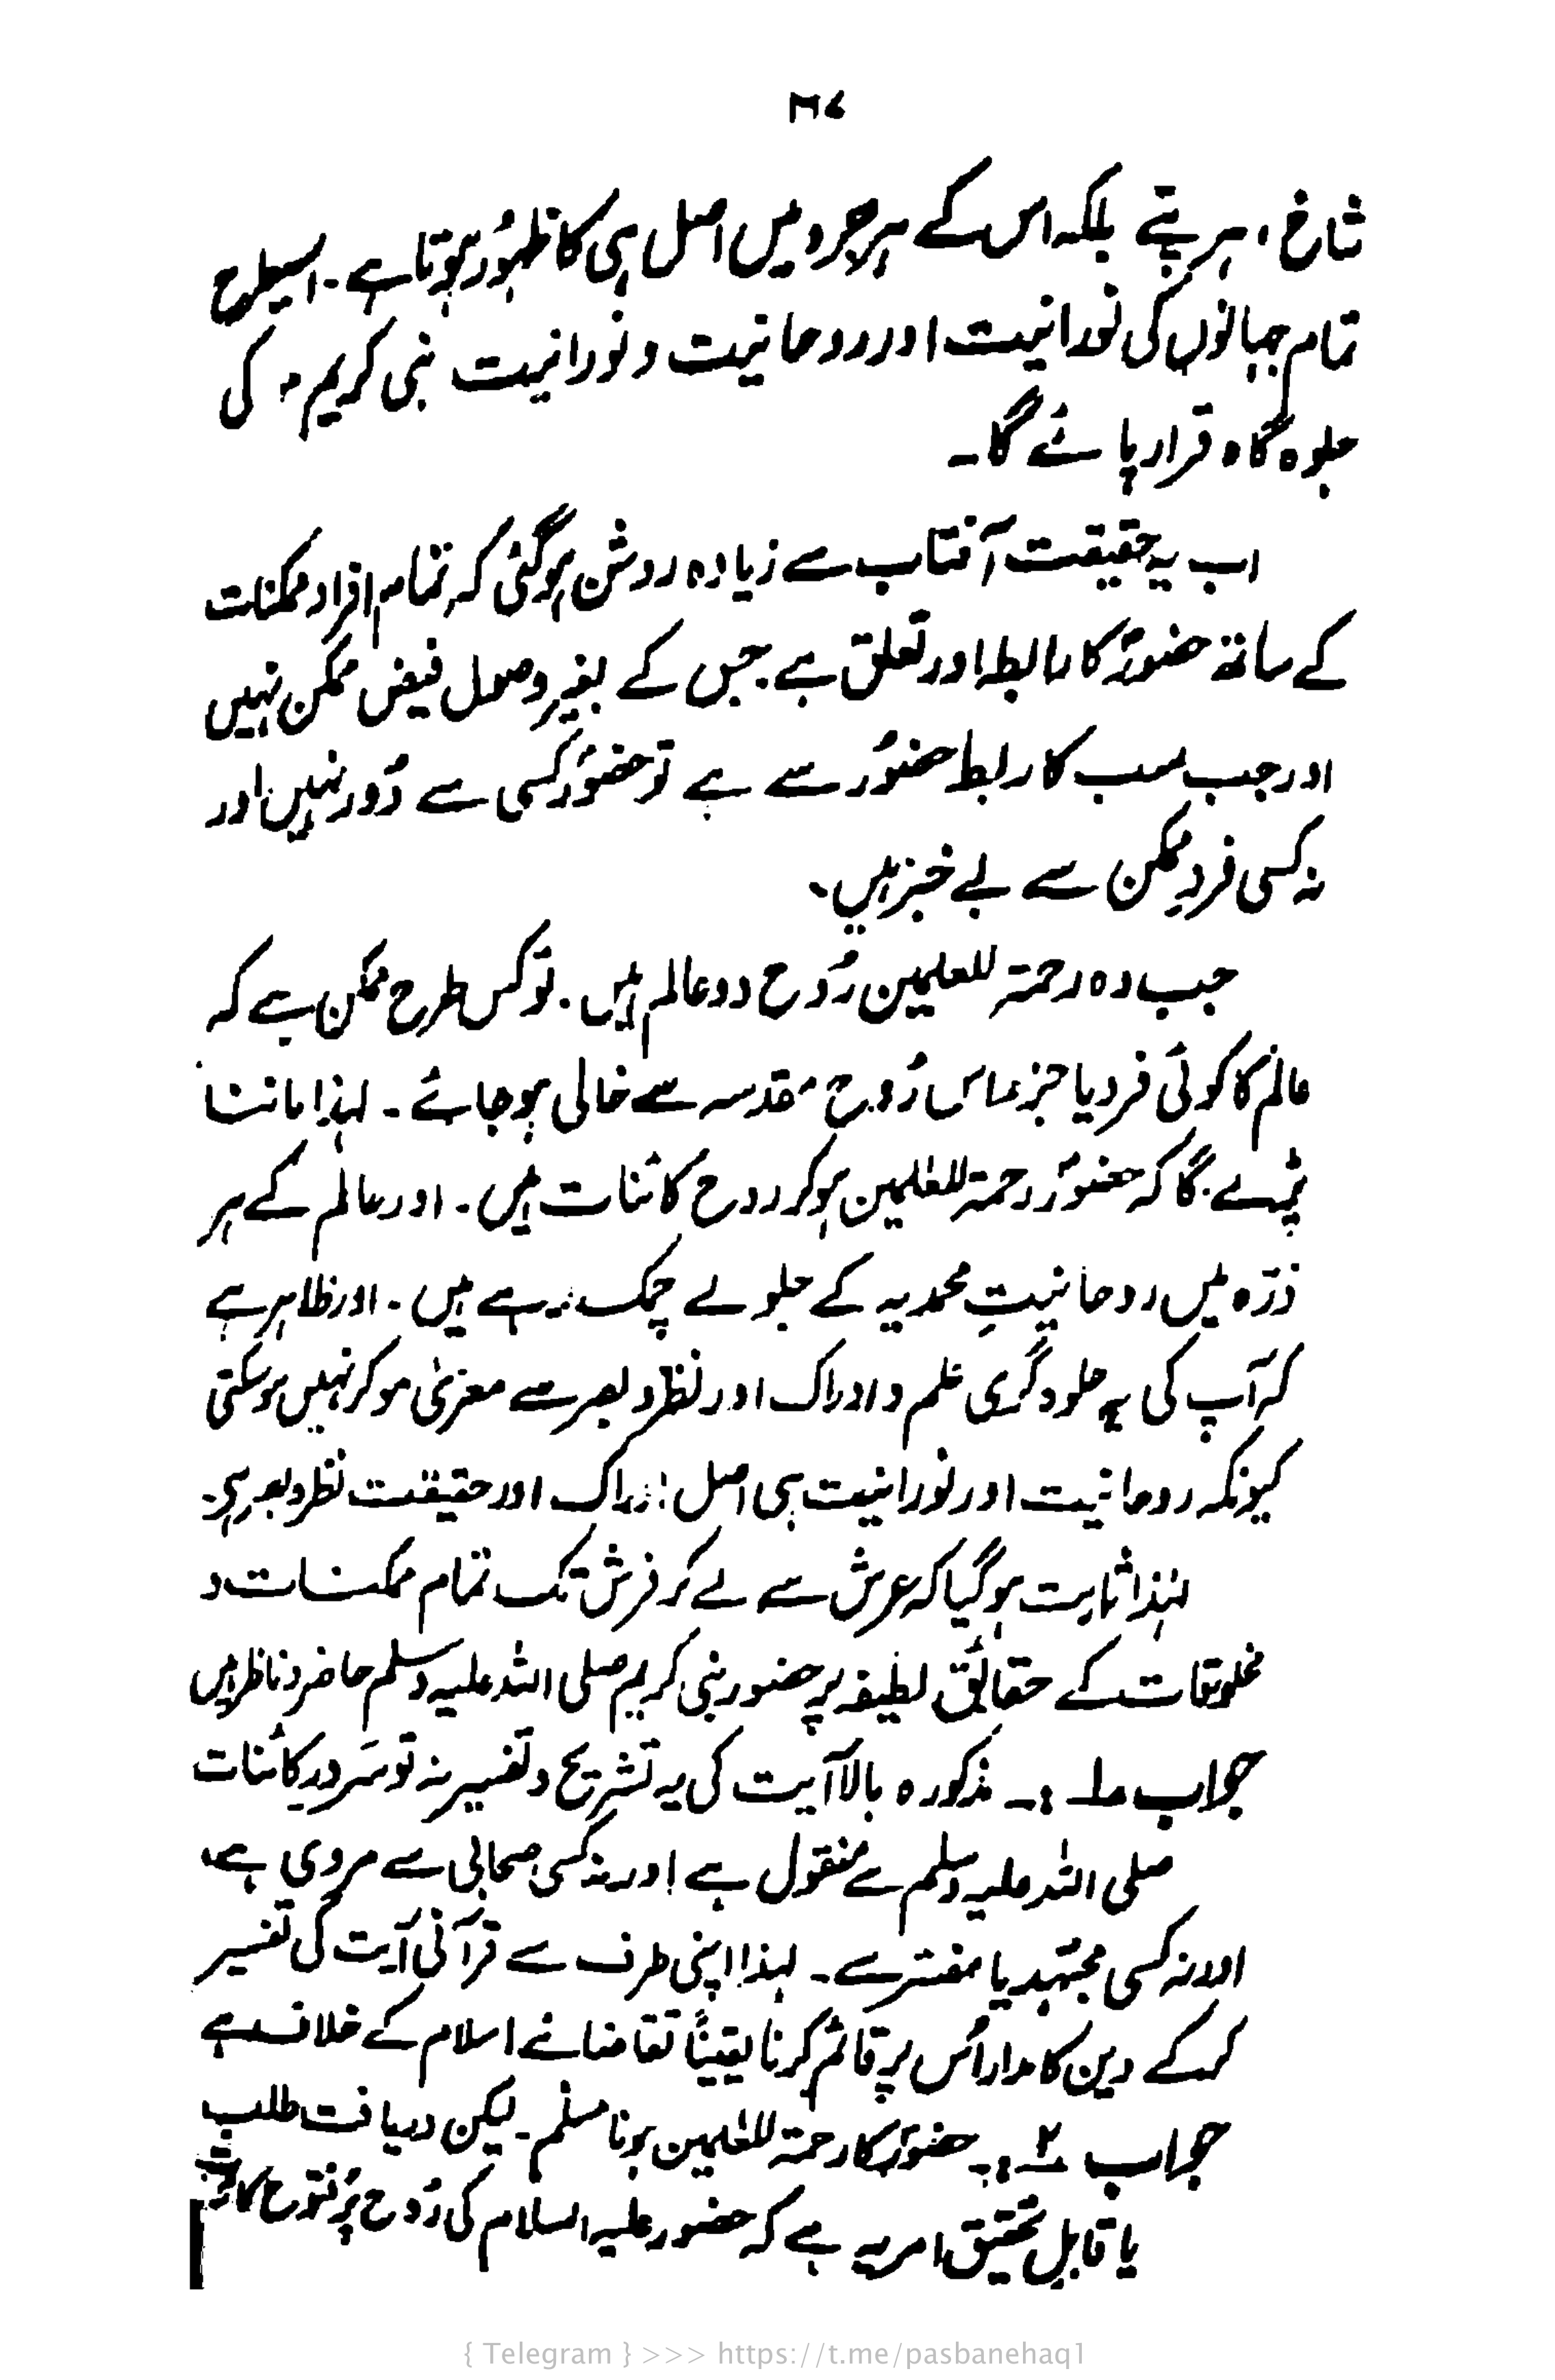 شاخ، ہر پتے بلکہ اس کے ہر جزو میں اصل ہی کا ظہور ہوتا ہے۔ اسیطرح
تمام جہانوں کی نورانیت اور روحانیت و نورانیت نبی کریم ؐ کی
جلوہ گاہ قرار پائے گا۔
اب یہ حقیقت آفتاب سے زیادہ روشن ہوگئی کہ تمام افراد ممکنات
کے ساتھ حضورؐ کا رابطہ اور تعلق ہے۔ جس کے بغیر وصول فیض ممکن نہیں
اور جب سب کا رابطہ حضورؐ سے ہے تو حضورؐ کسی سے دُور نہیں اور
نہ کسی فردِ ممکن سے بے خبر ہیں۔
جب وہ رحمۃ للعلمین رُوح دو عالم ہیں۔ تو کس طرح ممکن ہے کہ
عالم کا کوئی فرد یا جز اس رُوح مقدسہ سے خالی ہو جائے۔ لہٰذا ماننا
پڑے گا کہ حضورؐ رحمۃ للعٰلمین ہو کر روح کائنات ہیں۔ اور عالم کے ہر
ذرّہ میں روحانیتِ محمدیہ کے جلوے چمک رہے ہیں۔ اور ظاہر ہے
کہ آپ کی یہ جلوہ گری علم و ادراک اور نظر و بصر سے معریٰ ہو کر نہیں ہو سکتی
کیونکہ روحانیت اور نورانیت ہی اصل ادراک اور حقیقت نظر و بصر ہے۔
لہٰذا ثابت ہو گیا کہ عرش سے لے کر فرش تک تمام ممکنات و
مخلوقات کے حقائق لطیفہ پر حضور نبی کریم صلی اللہ علیہ وسلم حاضر و ناظر ہیں
جواب ۱ :۔ مذکورہ بالا آیت کی یہ تشریح و تفسیر نہ تو سَرورِ کائنات
صلی اللہ علیہ وسلم سے منقول ہے اور نہ کسی صحابی سے مروی ہے
اور نہ کسی مجتہد یا مفسّر سے۔ لہٰذا اپنی طرف سے قرآنی آیت کی تفسیر
کر کے دین کا مدار اُس پر قائم کرنا یقیناً تقاضائے اسلام کے خلاف ہے
جواب ۲ :۔ حضورؐ کا رحمۃ للعٰلمین ہونا مسلم۔ لیکن دریافت طلب
یا قابلِ تحقیق امر یہ ہے کہ حضور علیہ السلام کی رُوح پُر فتوح
{ Telegram } >>> https://t.me/pasbanehaq1